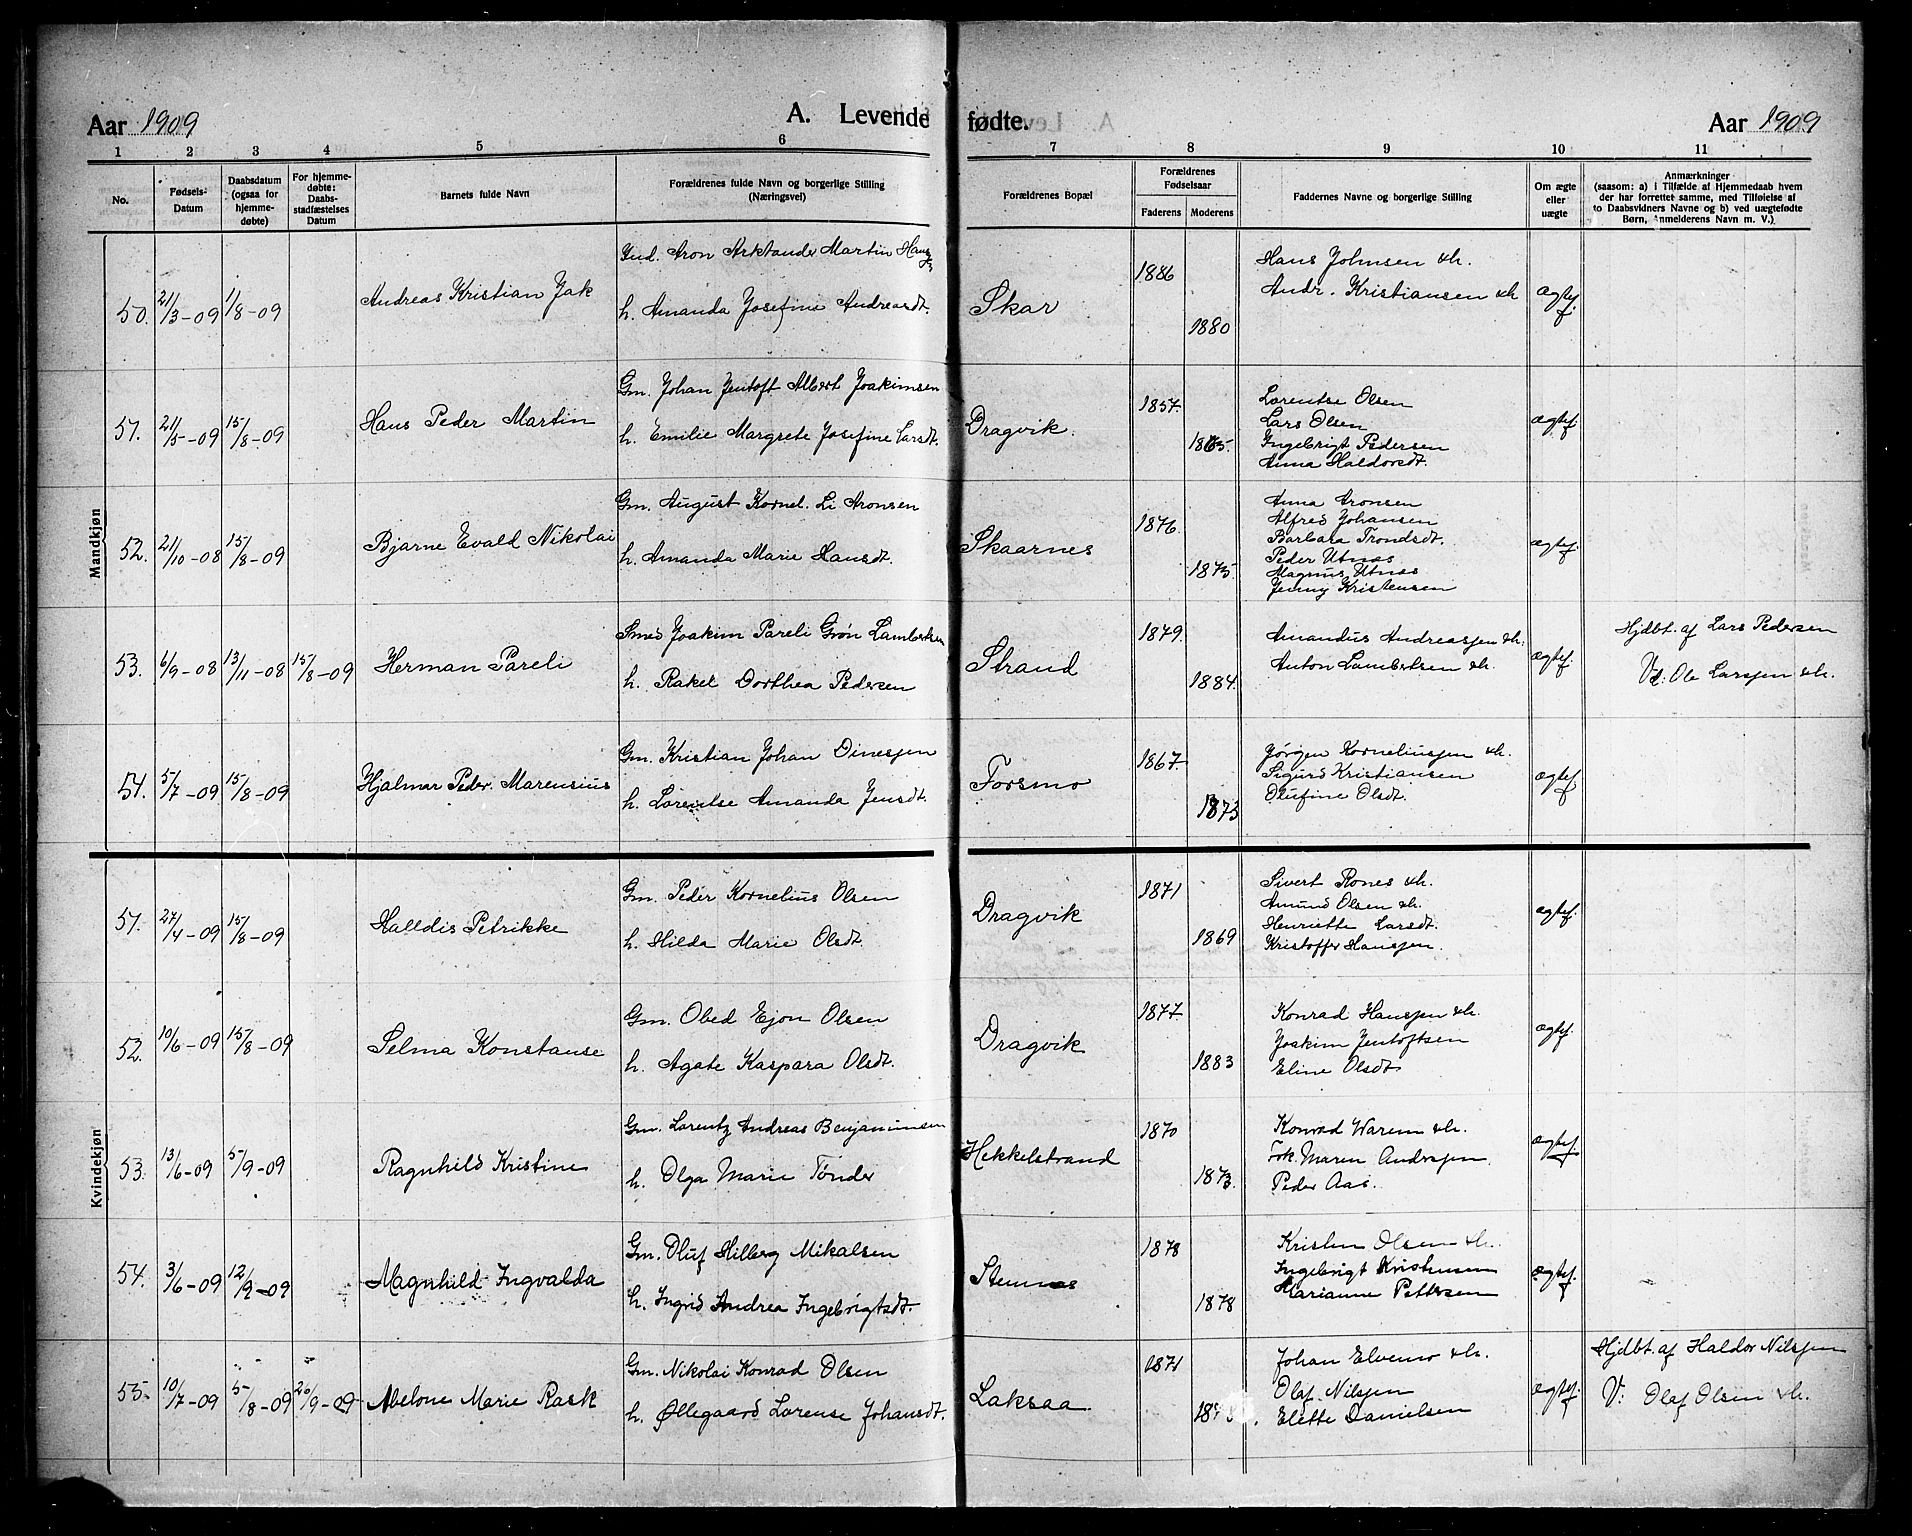 Aar 1909 A. Levende fødte. Aar 1909
1 2 3 4 5 6 7 8 9 10 11
No.
Fødsels-
Datum
Daabsdatum
(ogsaa for
hjemme-
døbte)
For hjemme-
døbte:
Daabs-
stadfæstelses
Datum
Barnets fulde Navn
Forældrenes fulde Navn og borgerlige Stilling
(Næringsvei)
Forældrenes Bopæl
Forældrenes
Fødselsaar
Faderens Moderens
Faddernes Navne og borgerlige Stilling
Om ægte
eller
uægte
Anmærkninger
(saasom: a) i Tilfælde af Hjemmedaab hvem
der har forrettet samme, med Tilføielse af
to Daabsvidners Navne og b) ved uægtefødte
Børn, Anmelderens Navn m. V.)
Mandkjøn
50. 21/3-09 1/8-09 Andreas Kristian Jak
Ind. Aron Arktander Martin
h. Amanda Josefine Andreasdt.
Skar
1886
1880
Hans Johnsen &h.
Andr. Kristiansen &h
ægtef.
51. 21/5-09 15/8-09 Hans Peder Martin
Gm. Johan Jentoft Albert Joakimsen
h. Emilie Margrete Josefine Larsdt.
Dragvik.
1857.
Lorentse Olsen
Lars Olsen
Ingebrigt Pedersen
Anna Haldorsdt.
ægtef.
52. 21/10-08 15/8-09 Bjarne Evald Nikolai
Gm. August Kornel. Li Aronsen
h. Amanda Marie Hansdt.
Skaarnes
1876.
1875.
Anna Aronsen
Alfred Johansen
Barbara Trondsdt.
Peder Utnæs
Magnus Utnæs
Jenny Kristensen
ægtef.
53. 6/9-08 13/11-08 15/8-09 Herman Pareli
Smed Joakim Pareli Grøn Lambertsen
h. Rakel Dorthea Pedersen
Strand
1879.
1884.
Amandus Andreasjen &h.
Anton Lambertsen &h.
ægtef.
Hjdbt. af Lars Pedersen
V: Ole Larsjen &h.
54. 5/7-09 15/8-09 Hjalmar Peder. Marensius
Gm. Kristian Johan Dinesjen
h. Lorentse Amanda Jensdt.
Forsmo
1867.
1873
Jørgen Korneliusjen &h.
Sigurd Kristiansen
Olufine Olsdt.
ægtef.
Kvindekjøn
51. 27/4-09 15/8-09 Halldis Petrikke
Gm. Peder Kornelius Olsen
h. Hilda Marie Olsdt.
Dragvik
1871
1869
Sivert Rones &h.
Amund Olsen &h.
Henriette Larsdt.
Kristoffer Hansjen.
ægtef.
52. 10/6-09 15/8-09 Selma Konstanse
Gm. Obed Ejon Olsen
h. Agate Kaspara Olsdt.
Dragvik
1877.
1883
Konrad Hansjen &h.
Joakim Jentoftsen
Eline Olsdt
ægtef.
53. 13/6-09 5/9-09 Ragnhild Kristine
Gm. Lorentz Andreas Benjaminsen
h. Olga Marie Tønder
Hekkelstrand
1870
1873.
Konrad Warem &h.
Frk. Maren Andrsjen.
Peder Aas.
ægtef.
54. 3/6-09 12/9-09 Magnhild Ingvalda
Gm. Oluf Hilberg Mikalsen
h. Ingrid Andrea Ingebrigtsdt.
Stennes
1878
1878
Kristen Olsen &h.
Ingebrigt Kristensen
Marianne Pettersen
ægtef.
55. 10/7-09 5/8-09 26/9-09 Abelone Marie Rask
Gm. Nikolai Konrad Olsen
h. Øllegaard Lorense Johansdt.
Laksaa.
1871
Johan Elvemo &h.
Olaf Nilsjen
Elette Danielsen
ægtef.
Hjdbt. af Haldor Nilsjen
V: Olaf Olsen &h.